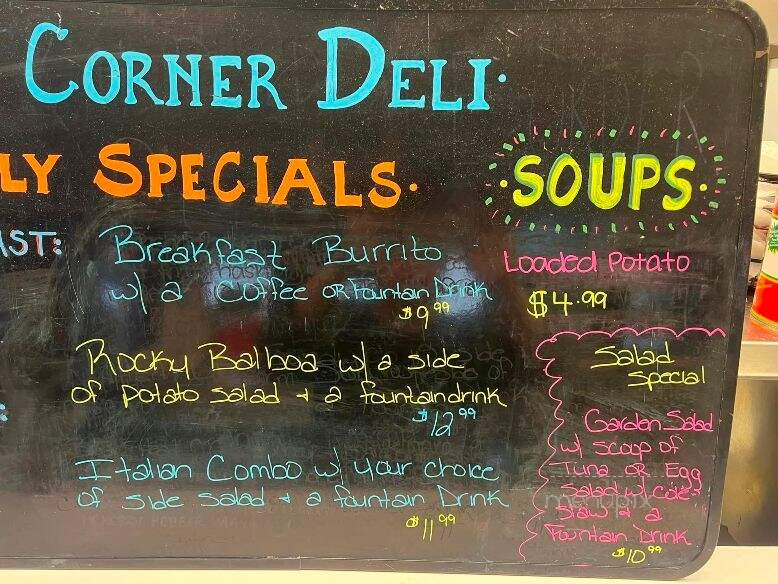 CORNER DELI·
LY SPECIALS·
·SOUPS·
AST:
Breakfast Burrito
w/ a Coffee OR Fountain Drink
$9.99
Loaded Potato
$4.99
Rocky Balboa w/ a side
of potato salad + a fountain drink
$12.99
Italian Combo w/ your choice
of side salad + a fountain Drink
$11.99
Salad
Special
Garden Salad
w/ scoop of
Tuna OR Egg
Salad w/ cole-
slaw + a
Fountain Drink
$10.99